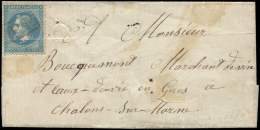 Monsieur
Boucquemont Marchand de vin
et eaux-de-vie en Gros à
Chalons-Sur-Marne